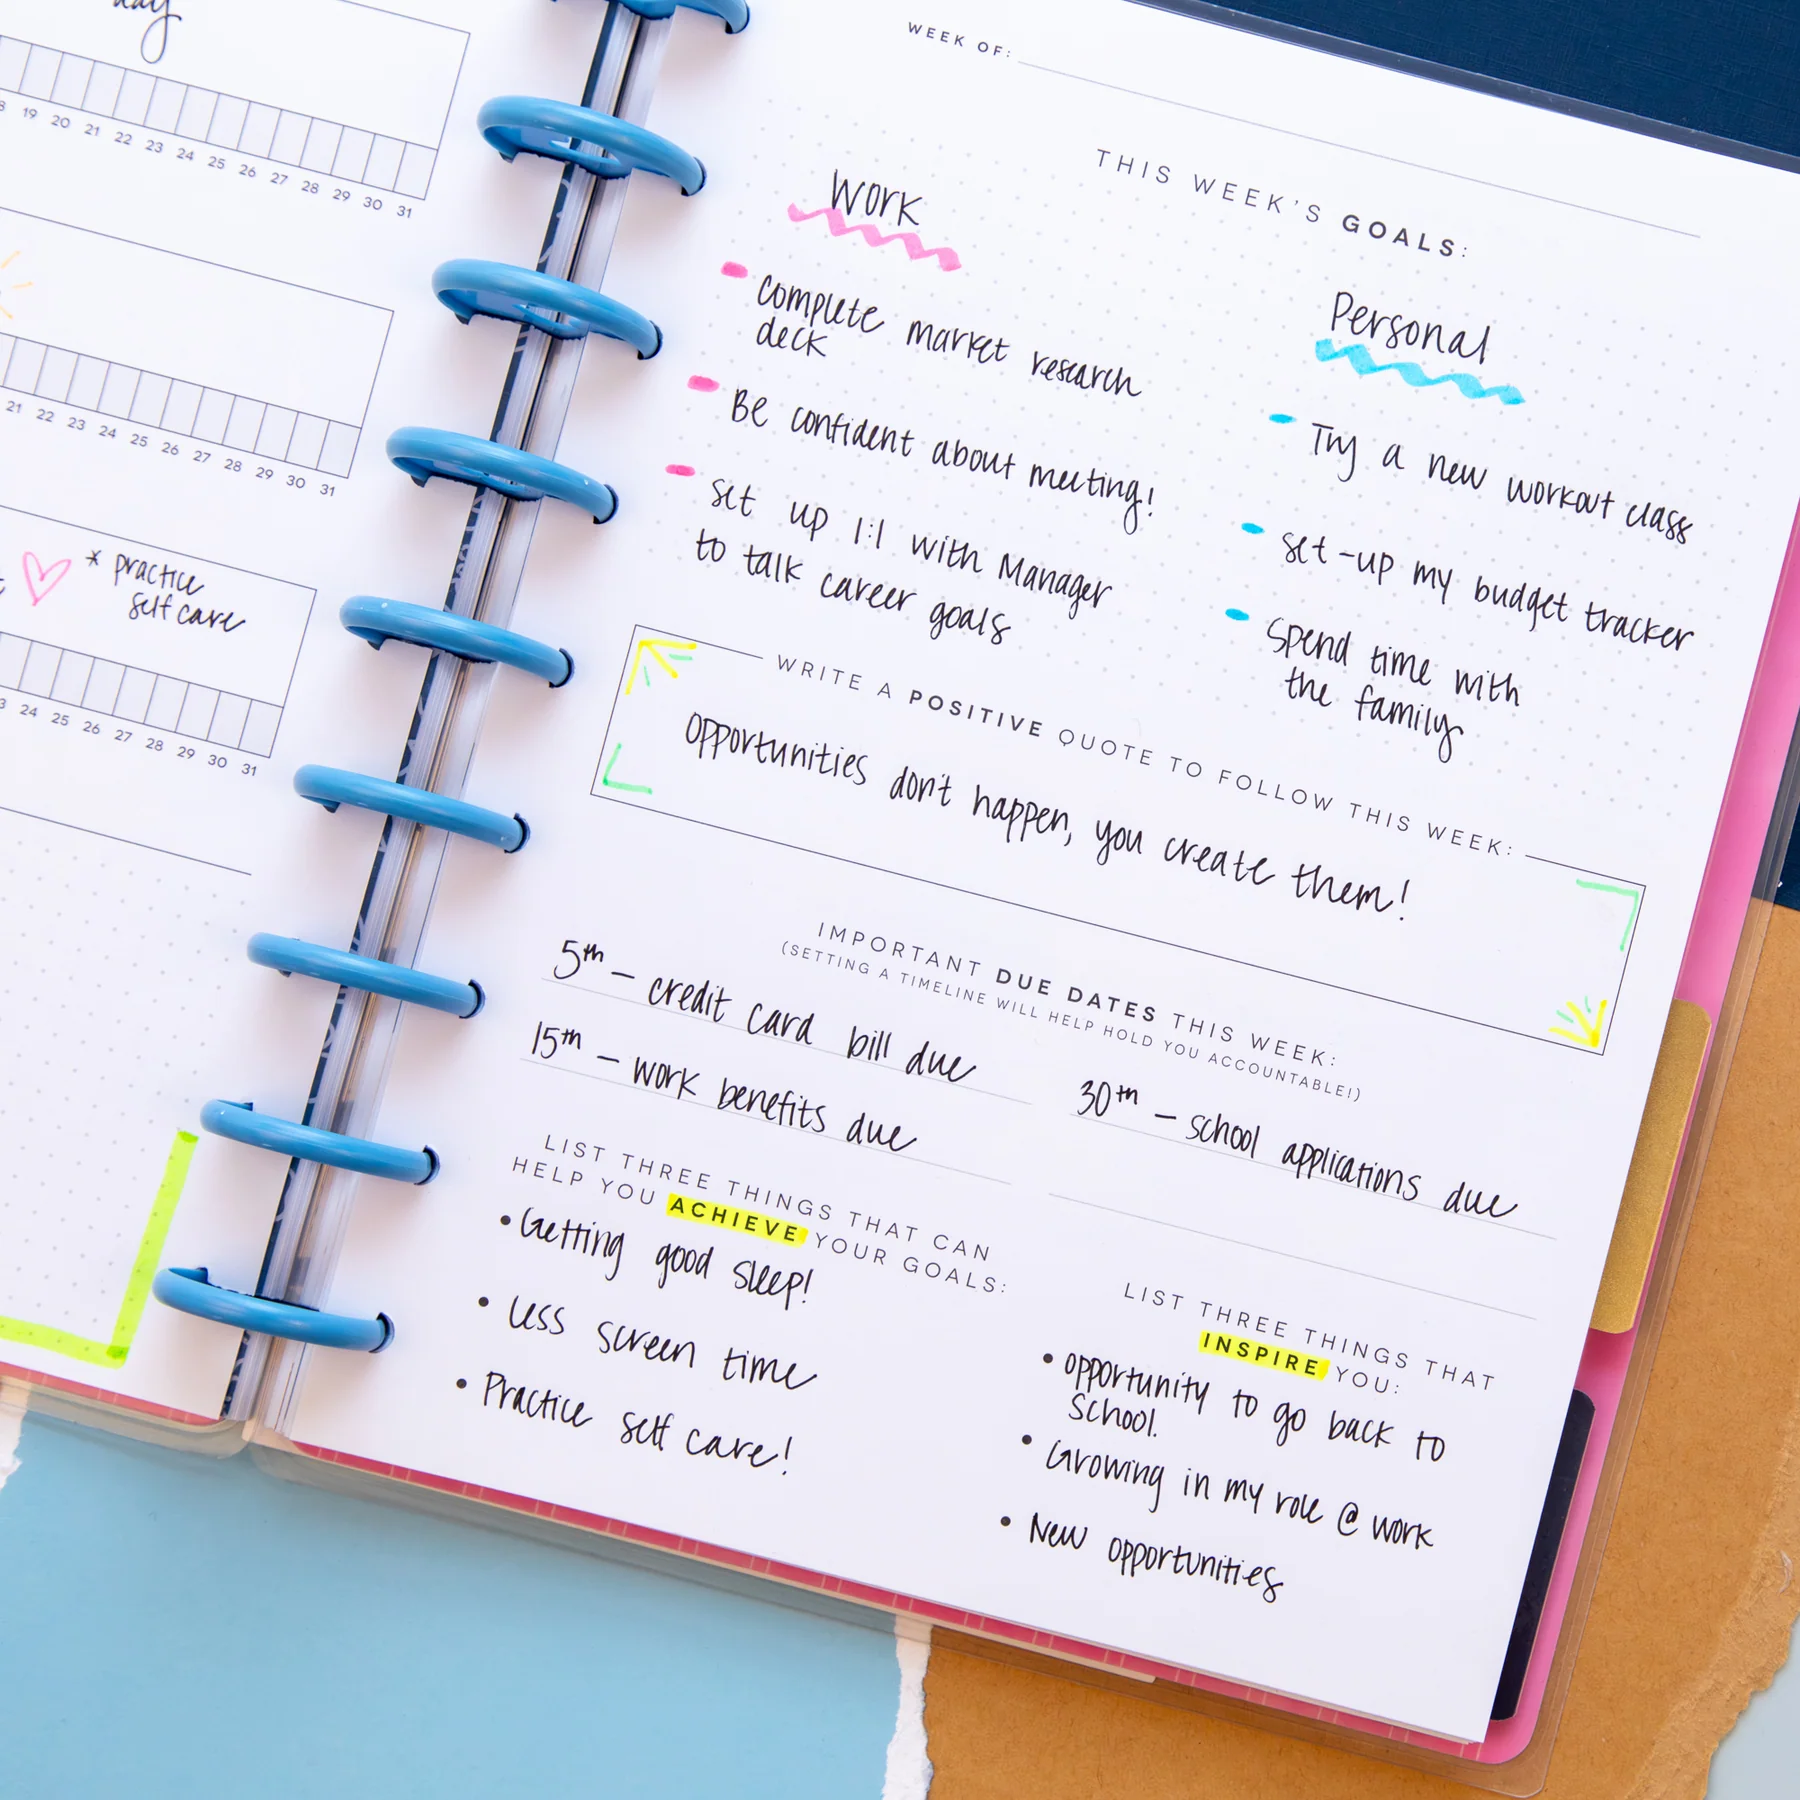 day
19 20 21 22 23 24 25 26 27 28 29 30 31
21 22 23 24 25 26 27 28 29 30 31
* practice
self care
24 25 26 27 28 29 30 31
WEEK OF:
THIS WEEK'S GOALS:
Work
Complete market research
deck
Be confident about meeting!
Set up 1:1 with Manager
to talk career goals
Personal
Try a new workout class
Set-up my budget tracker
Spend time with
the family
WRITE A POSITIVE QUOTE TO FOLLOW THIS WEEK:
Opportunities don't happen, you create them!
IMPORTANT DUE DATES THIS WEEK:
(SETTING A TIMELINE WILL HELP HOLD YOU ACCOUNTABLE!)
5th - credit card bill due
15th - work benefits due
30th - school applications due
LIST THREE THINGS THAT CAN
HELP YOU ACHIEVE YOUR GOALS:
• Getting good sleep!
• Less screen time
• Practice self care!
LIST THREE THINGS THAT
INSPIRE YOU:
• opportunity to go back to
School.
• Growing in my role @ work
• New opportunities